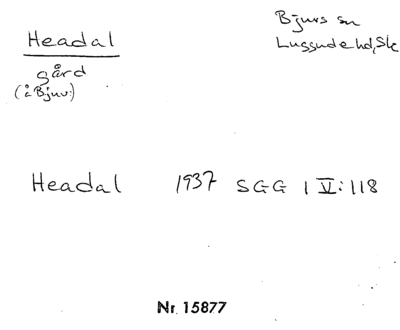 Headal
Bjuvs sn
Luggude hd, Sk
gård
(å Bjuv:)
Headal 1937 SGG 1 V:118
Nr. 15877